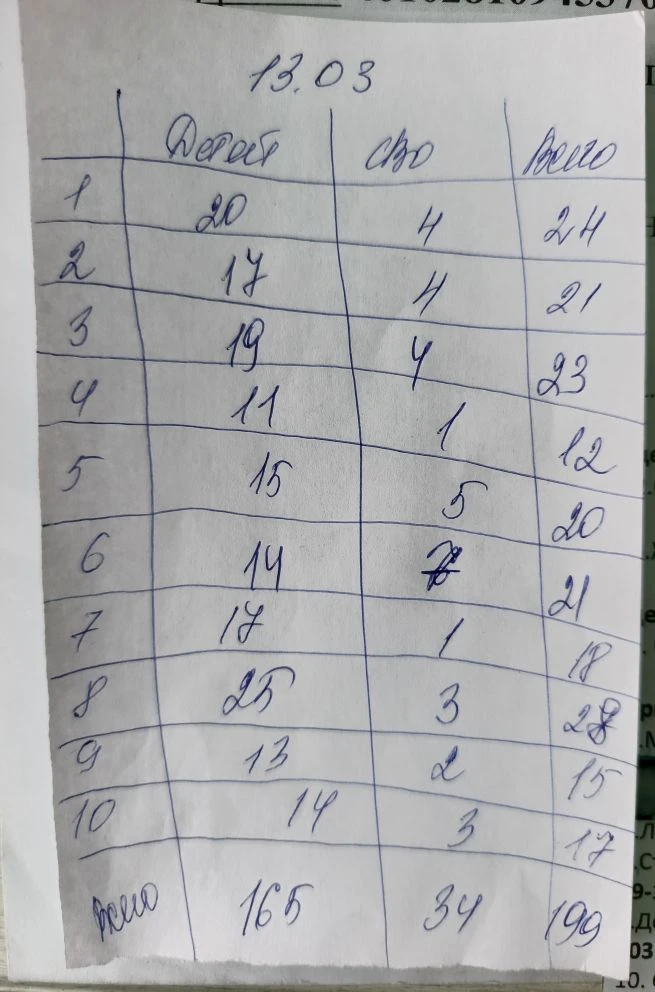 13.03
Детсад СВО Всего
1 20 4 24
2 17 4 21
3 19 4 23
4 11 1 12
5 15 5 20
6 14 7 21
7 17 1 18
8 25 3 28
9 13 2 15
10 14 3 17
Всего 165 34 199